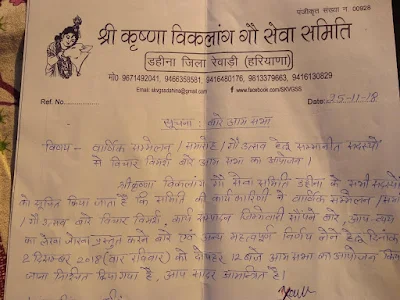 पंजीकृत संख्या न. 00928
श्री कृष्णा विकलांग गौ सेवा समिति
डहीना जिला रेवाड़ी (हरियाणा)
मो० 9671492041, 9466359581, 9416480176, 9813379663, 9416130829
Email: skvgssdahina@gmail.com www.facebook.com/SKVGSS
Ref. No. Date: 25-11-18
सूचना बारे आम सभा
विषय - वार्षिक सम्मेलन / समारोह / गौ उत्सव हेतु सम्मानीत सदस्यों
से विचार विमर्श बारे आम सभा का आयोजन।
श्रीकृष्णा विकलांग गौ सेवा समिति डहीना के सभी सदस्यों
को सूचित किया जाता है कि समिति की कार्यकारिणी ने वार्षिक सम्मेलन
/ गौ उत्सव बारे विचार विमर्श, कार्य संपादन जिम्मेवारी सौंपने बारे, आय-व्यय
का लेखा जोखा प्रस्तुत करने बारे एवं अन्य महत्वपूर्ण निर्णय लेने हेतु दिनांक
2 दिसम्बर 2018 (वार रविवार) को दोपहर 12 बजे आम सभा का आयोजन किया
जाना निश्चित किया गया है. आप सादर आमन्त्रित है।